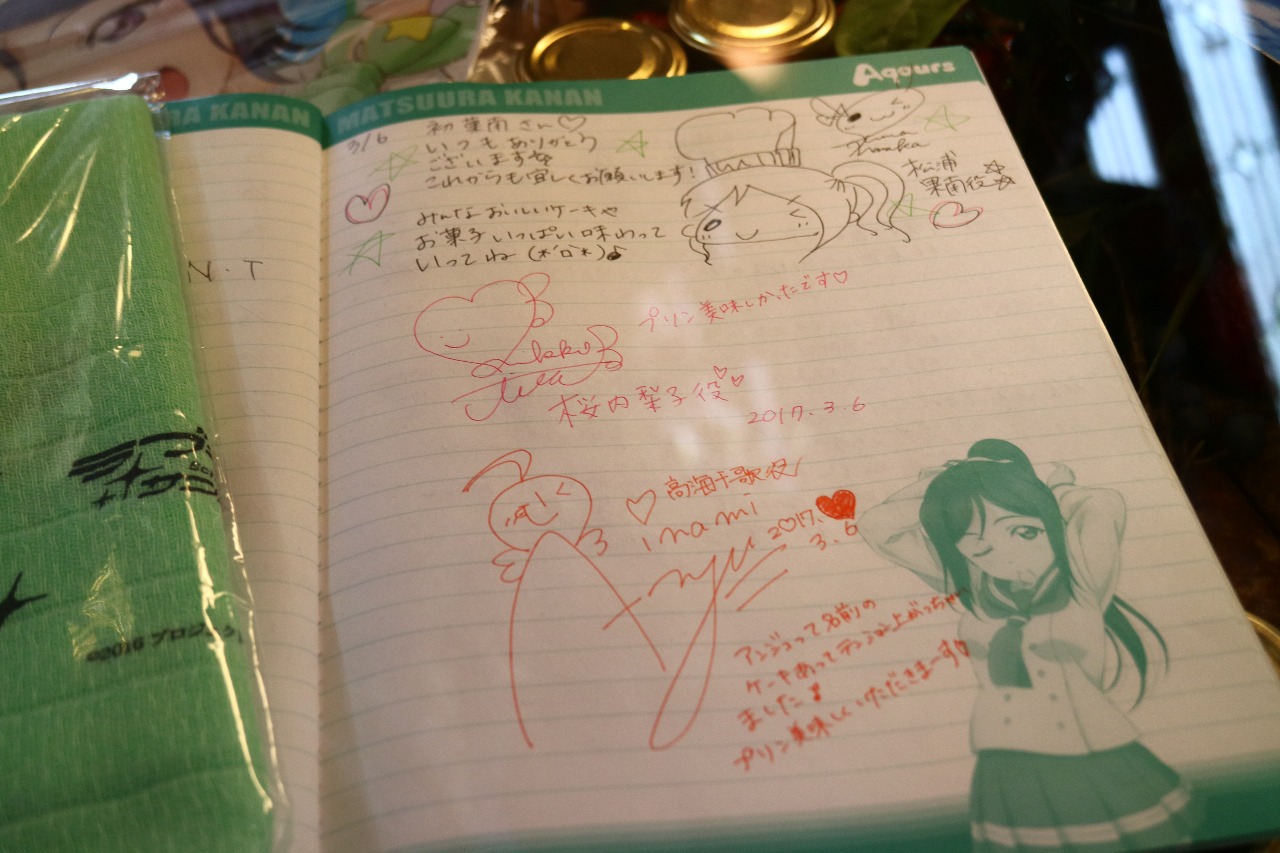 Aqours
RA KANAN
MATSUURA KANAN
3/6
いつもありがとう
ございます
これからも宜しくお願いします!
みんなおいしいケーキや
お菓子いっぱい味わって
いってね(*'ロ'*)♪
松浦
果南役☆
N.T
プリン美味しかったです♡
Rikako
Aida
桜内梨子役♡♡
2017.3.6
♡高海千歌役
inami
Anju
2017.
3.6
アンジュって名前の
ケーキあってテンション上がっちゃい
ました♪
プリン美味しくいただきまーす♡
©2016 プロジェクト